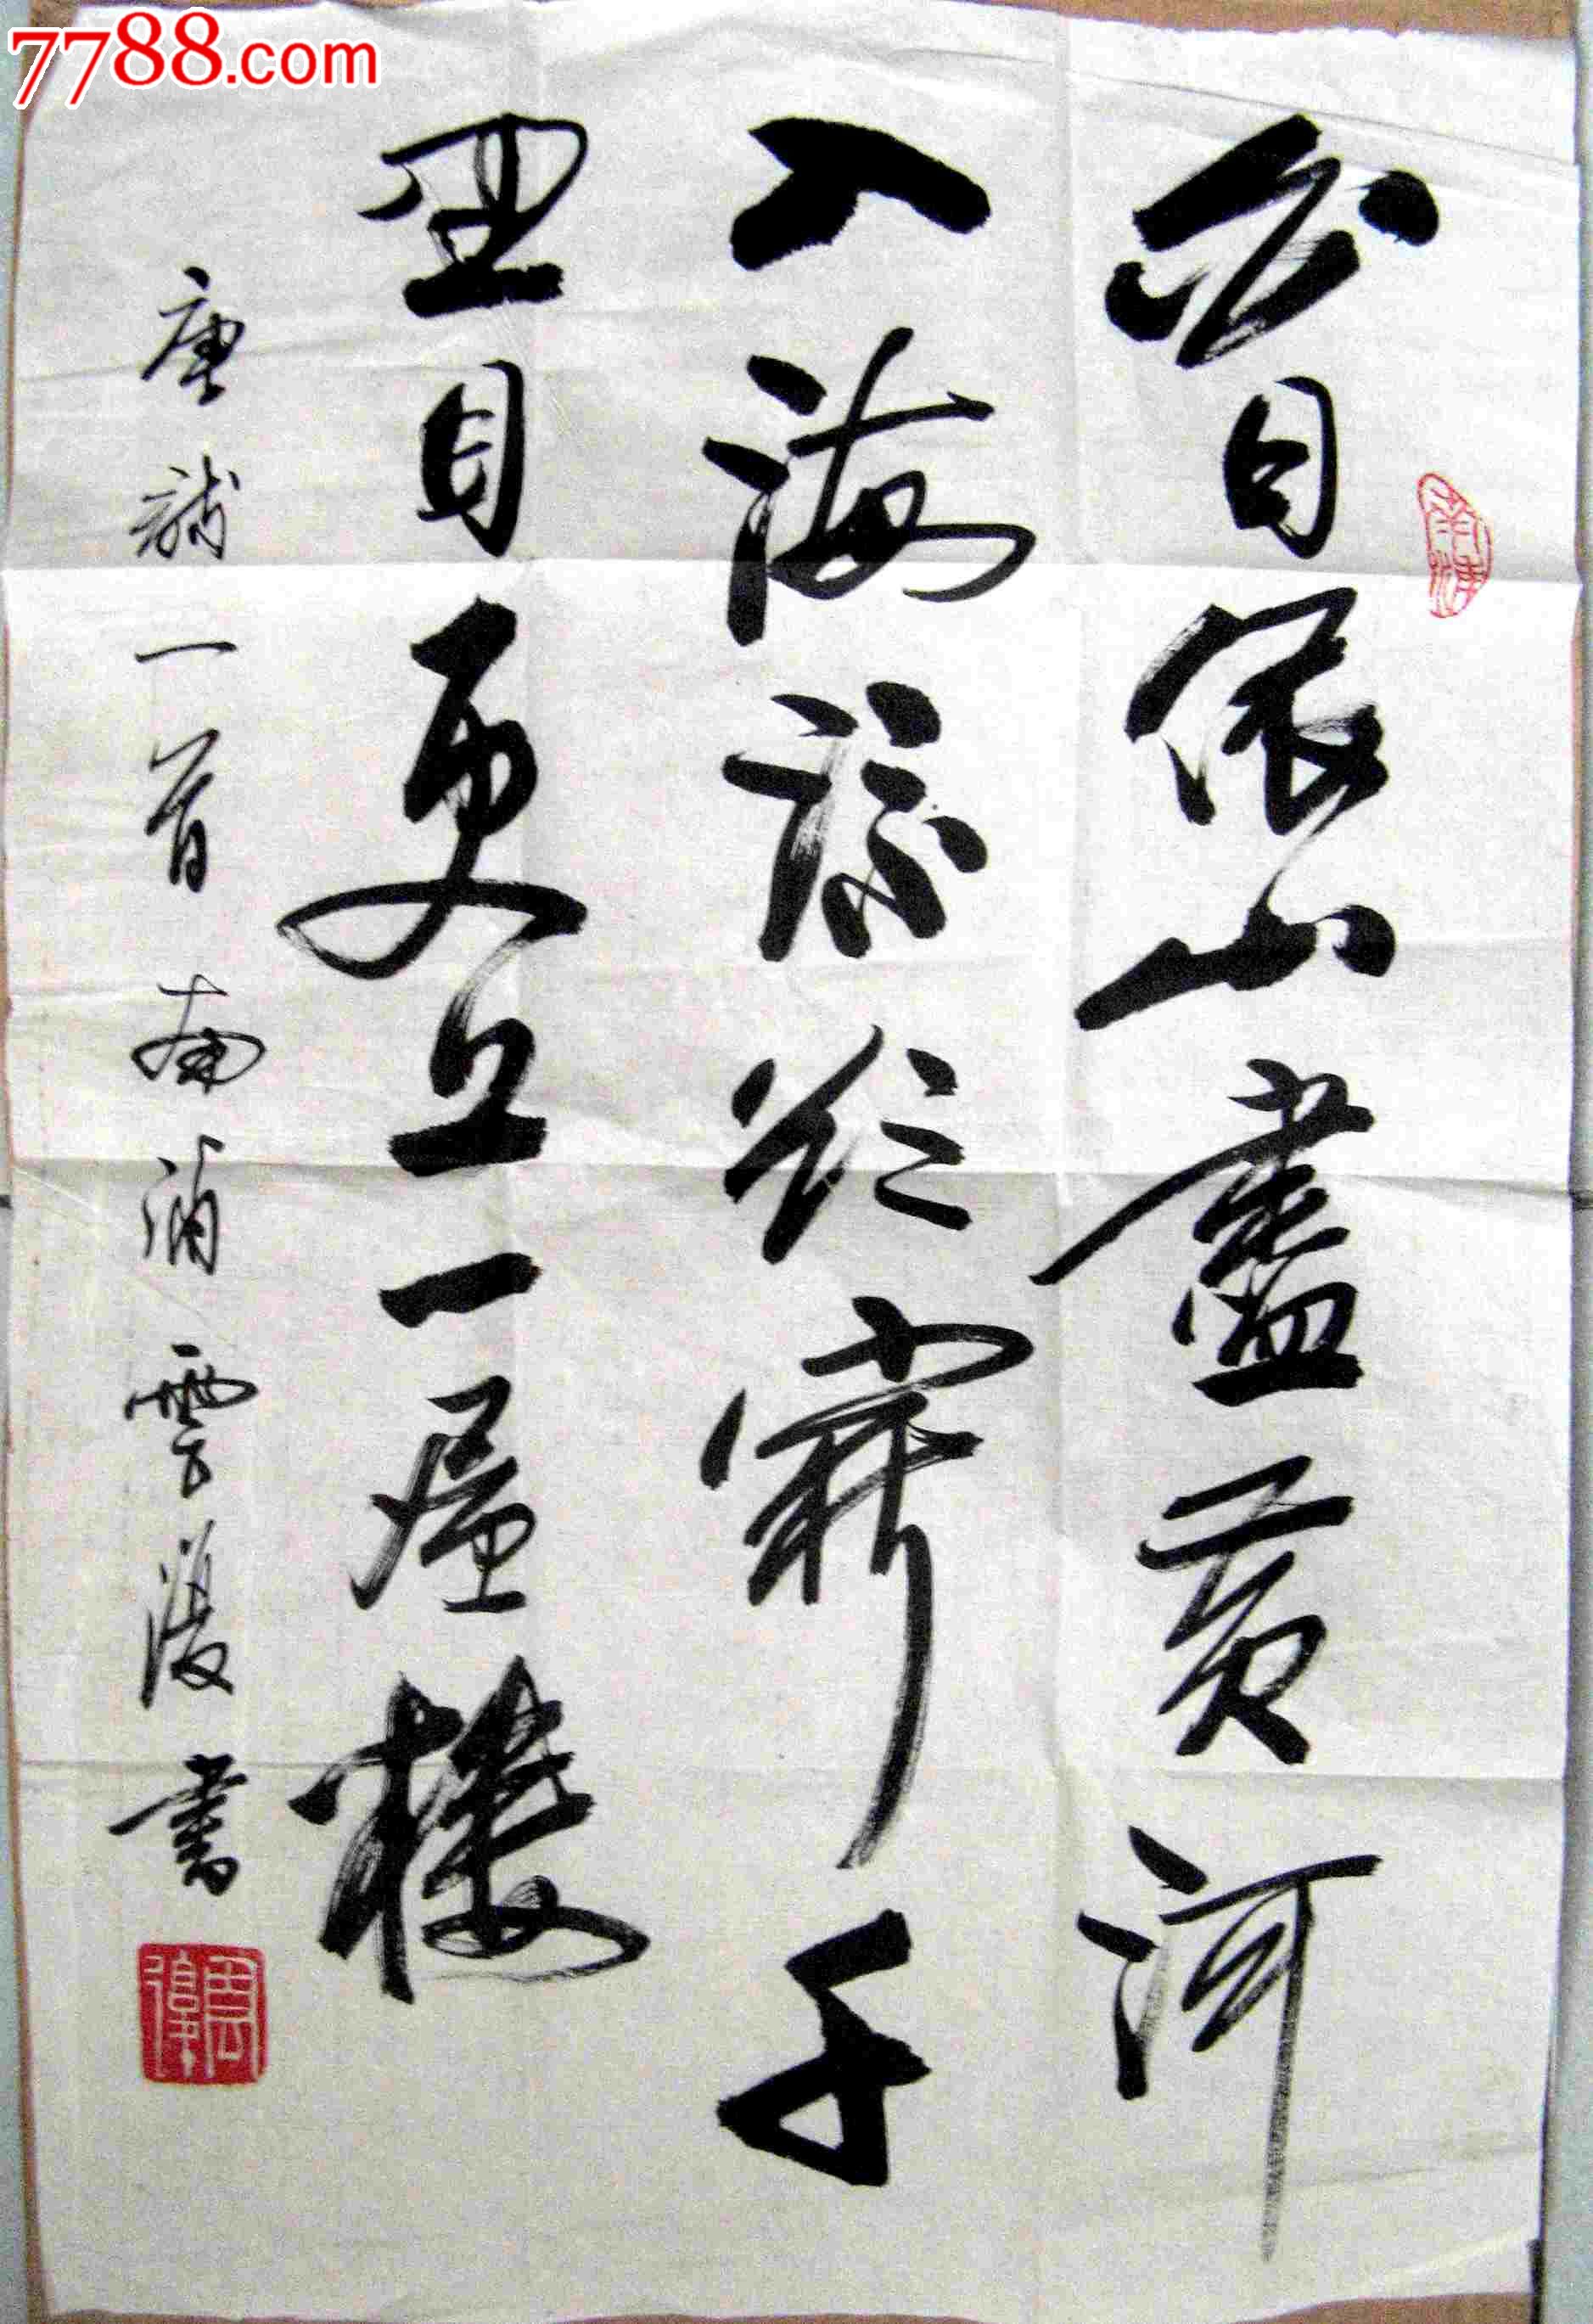 7788.com
白日依山盡黄河
入海流欲窮千
里目更上一層樓
唐詩一首南浦雲書